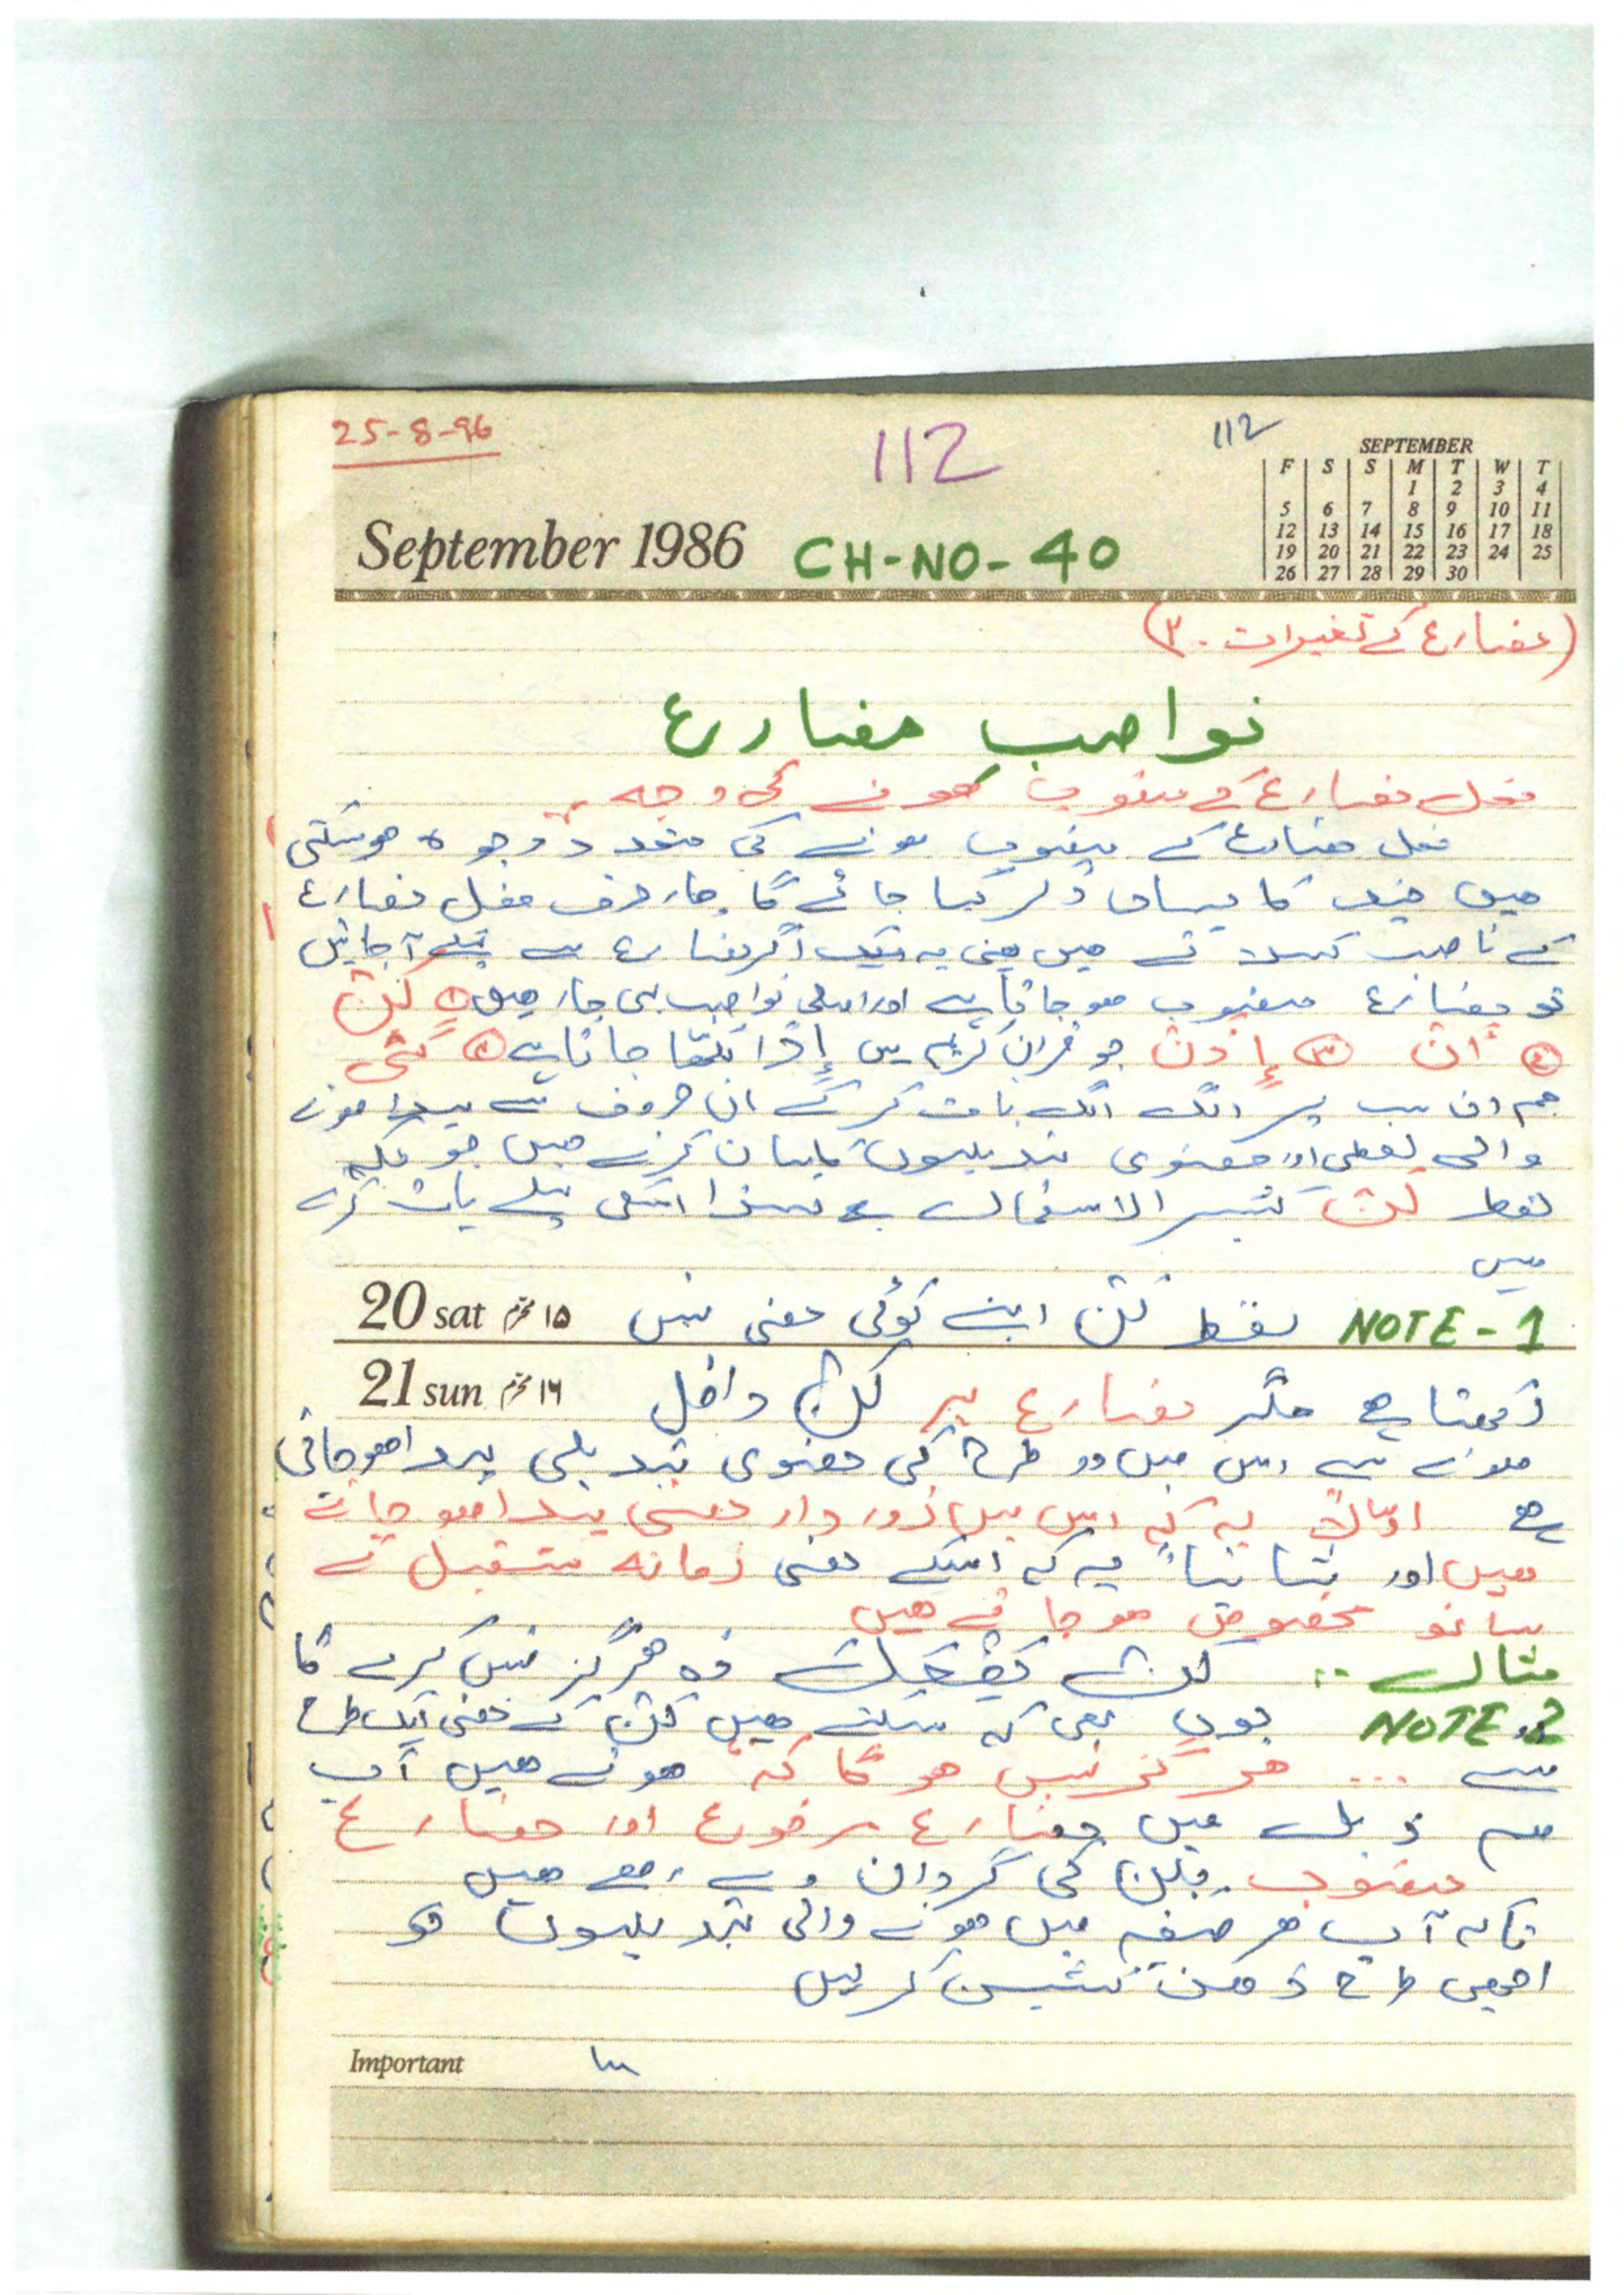 25-8-96
112
112
SEPTEMBER
F S S M T W T
1 2 3 4
5 6 7 8 9 10 11
12 13 14 15 16 17 18
19 20 21 22 23 24 25
26 27 28 29 30
September 1986 CH-NO-40
(مضارع کے تغیرات - ۳)
نواصب مضارع
فعل مضارع کے منصوب ہونے کی وجہ
فعل مضارع کے منصوب ہونے کی متعدد وجوہ ہوسکتی
ہیں جن کا یہاں ذکر کیا جائے گا۔ چار حرف فعل مضارع
کے ناصب کہلاتے ہیں یعنی یہ اگر مضارع سے پہلے آجائیں
تو مضارع منصوب ہوجاتا ہے اور اصلی نواصب یہی چار ہیں ① لَنْ
② أَنْ ③ إِذَنْ جو قرآن کریم میں إِذًا لکھا جاتا ہے ④ كَيْ
ہم ان سب پر الگ الگ بات کرکے ان حروف سے پیدا ہونے
والی لفظی اور معنوی تبدیلیوں کا بیان کرتے ہیں چونکہ
لفظ لَنْ کثیر الاستعمال ہے لہذا اسکی پہلے بات کرتے
ہیں
NOTE-1 لفظ لَنْ اپنے کوئی معنی نہیں
20 sat ۱۵ محرم
رکھتا ہے مگر مضارع پر لَنْ داخل
21 sun ۱۶ محرم
ہونے سے اس میں دو طرح کی معنوی تبدیلی پیدا ہوجاتی
ہے اولاً یہ کہ اس میں زور دار معنی پیدا ہوجاتے
ہیں اور ثانیاً یہ کہ اسکے معنی زمانہ مستقبل کے
ساتھ مخصوص ہوجاتے ہیں
مثال :- لَنْ يَفْعَلَ وہ ہرگز نہیں کرے گا
NOTE.2 یوں بھی کہہ سکتے ہیں لَنْ کے معنی ایک طرح
سے ... ہرگز نہیں ہوگا کہ ہوتے ہیں اب
ہم ذیل میں مضارع مرفوع اور مضارع
منصوب بلن کی گردان دے رہے ہیں
تاکہ آپ ہر صیغہ میں ہونے والی تبدیلیوں کو
اچھی طرح ذہن نشین کرلیں
Important